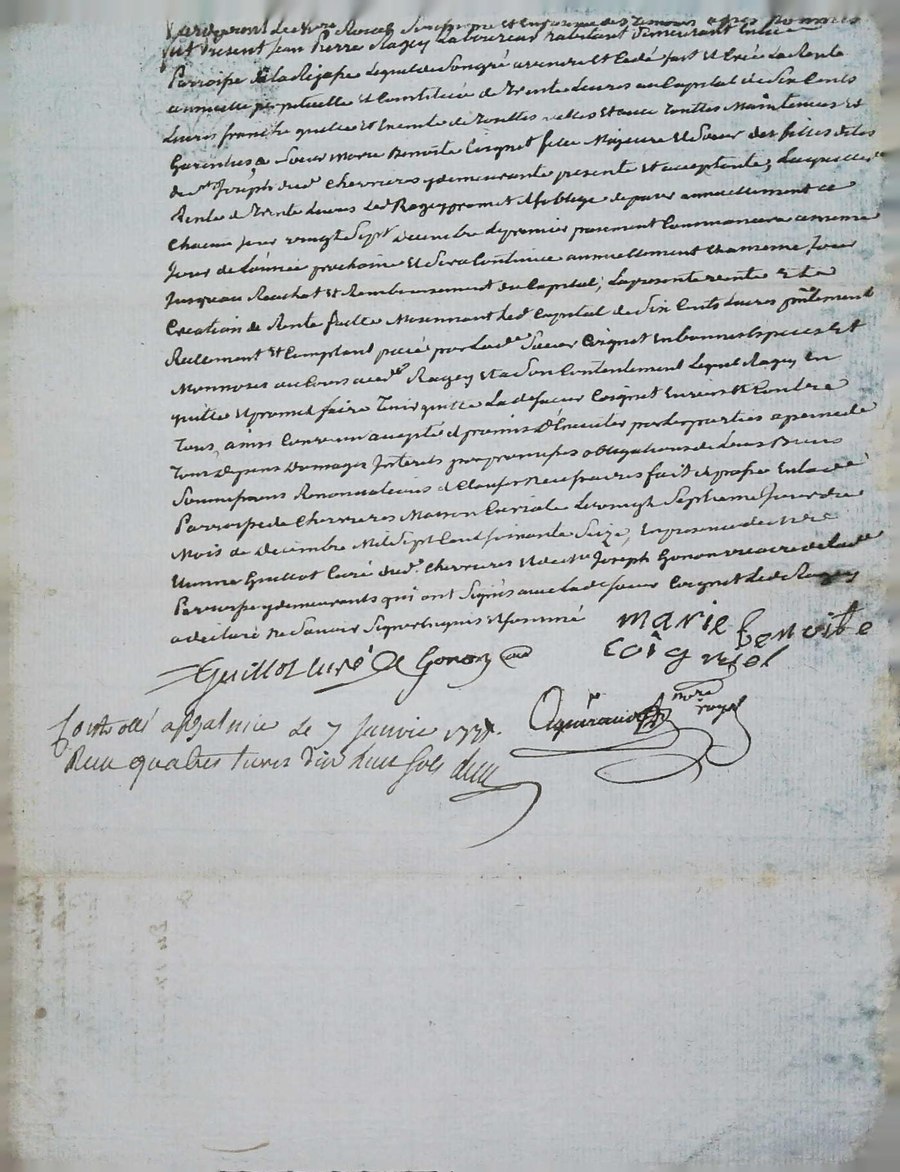 Pardevant Le Nore Royal Soussigné et En presence des temoins apres nommés
fut Present Jean Pierre Ragey Laboureur habitant demeurant En la
Parroisse de la Lequel de Son gré a vendu Et Cedé fait et Créé La Rente
annuelle perpetuelle Et Constituée de Trente Livres au Capital de Six Cents
Livres franche quitte Et Exempte de Touttes tailles Et avec Touttes Maintenues Et
Garenties a Soeur Marie Benoite Coignet fille Majeure Et Soeur des filles de
de St Joseph dud. Chevrieres y demeurante presente Et acceptante; Laquelle
Rente de Trente Livres Led. Ragey promet Et s'oblige de payer annuellement a
Chacun Jour vingt Sept decembre le premier payement Commancera a meme
Jour de Lannée prochaine Et Sera Continué annuellement Chaq meme Jour
Jusqu'au Rachat et Remboursement du Capital; La presente vente Et
Creation de Rente faitte Moyennant led Capital de Six Cents Livres pntement
Reellement Et Comptant payé par Lade Soeur Coignet En bonnes Especes Et
Monnoyes au Cours aud. Ragey Et a Son Contentement Lequel Ragey En
quitte Et promet faire Tenir quitte La de Soeur Coignet Envers Et Contre
Tous, ainsi Convenu accepté Et promis D'Executer par Les parties a peine de
Tous Depens Domages Interets par promesses obligations de Leurs Biens
Soumissions Renonciations Et Clauses Necessaires fait Et passé En lad.
Parroisse de Chevrieres Maison Curiale Le vingt Septieme Jour du
Mois de Decembre Mil Sept Cent Soixante Seize, En presence de
Guillot Curé dud. Chevrieres Et de Joseph Gonon vicaire de lad.
Parroisse y demeurants qui ont Signés avec la de Soeur Coignet Led. Ragey
a declaré Ne Savoir Signer Enquis Et Sommé
marie benoite
Coignet
Guillot curé Gonon
nore
royal
Controllé a St Galmier le 7 Janvier 177
Reçu quatres livres dix huit sols